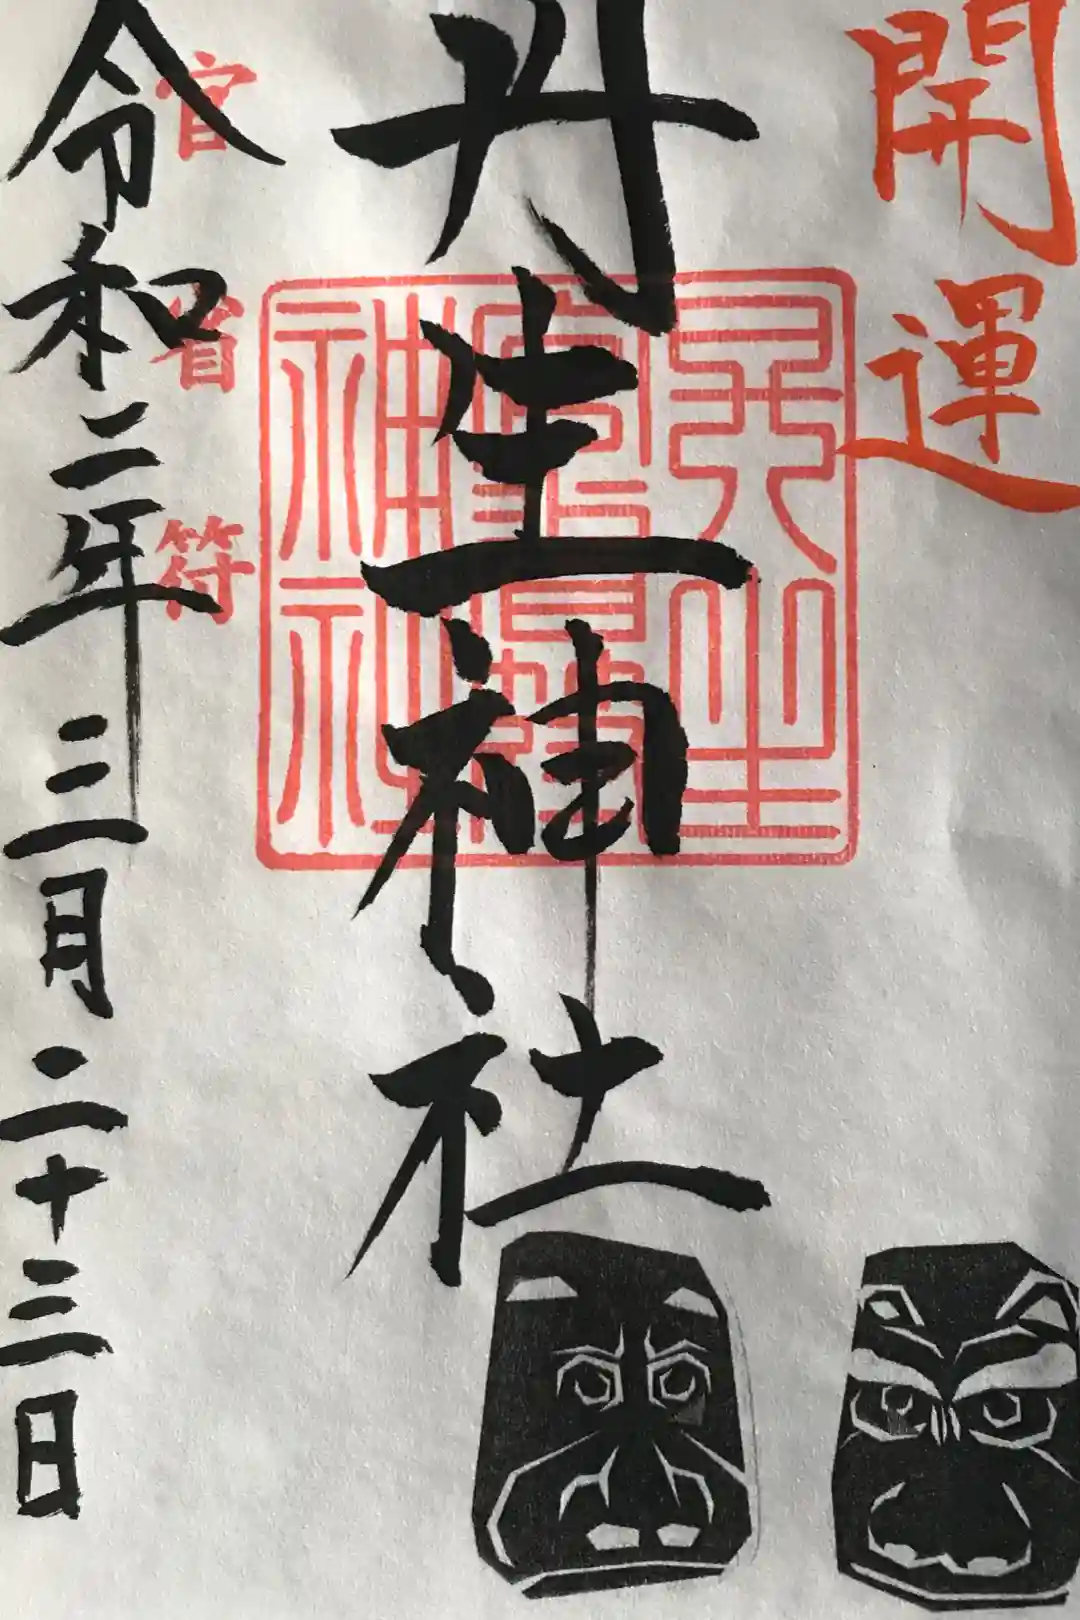 開運
丹生神社
丹生
官省符
神社
官省符
令和二年三月二十三日